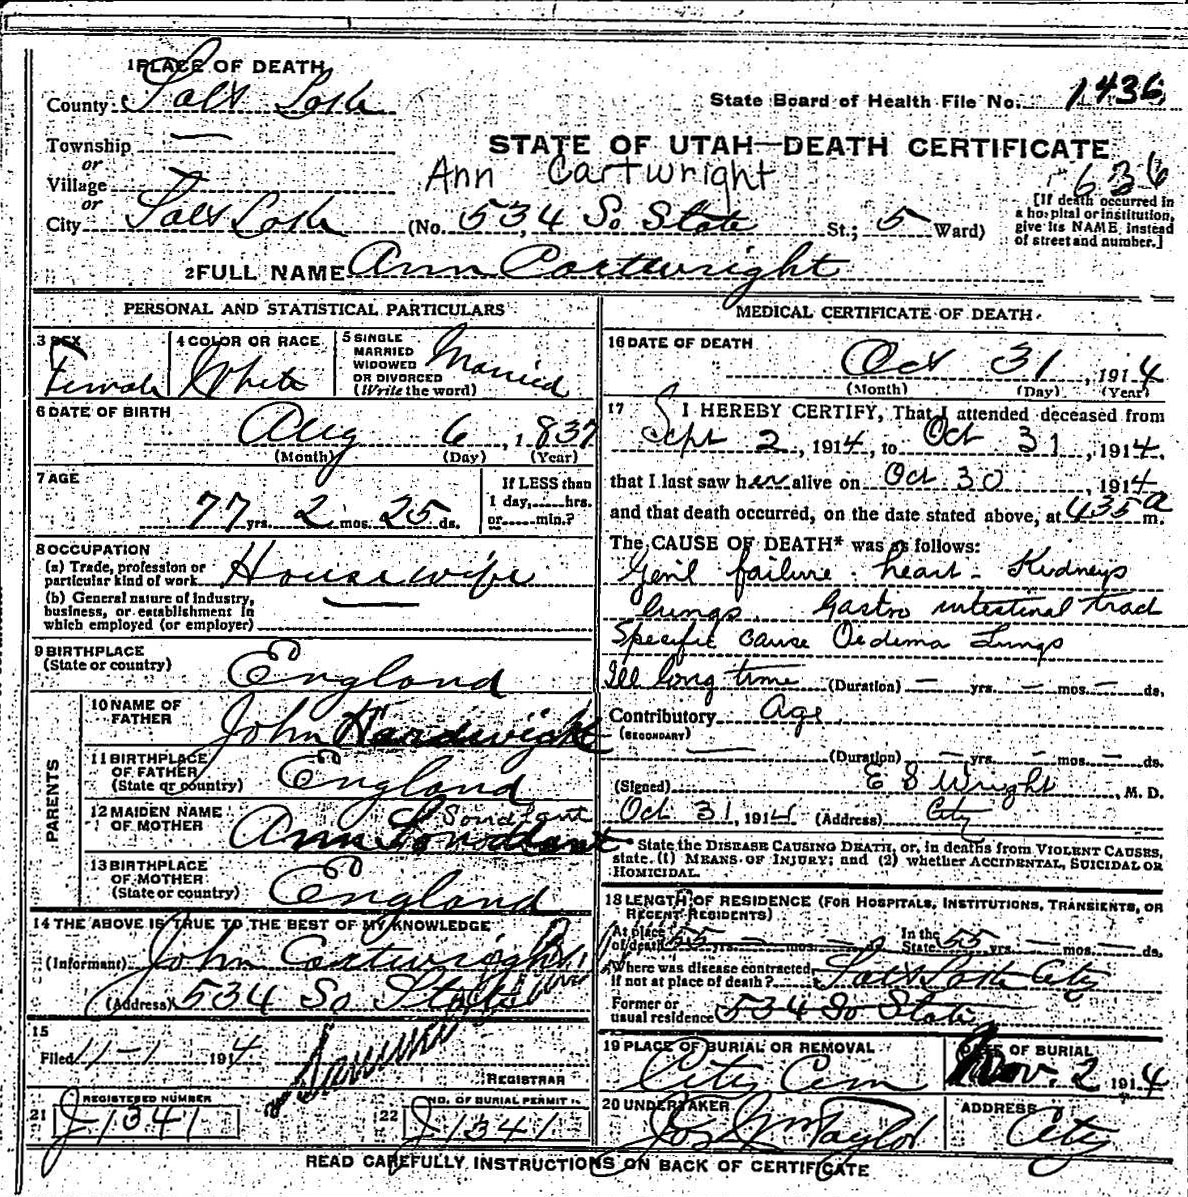 1 PLACE OF DEATH
County Salt Lake
State Board of Health File No. 1436
Township —
or
STATE OF UTAH—DEATH CERTIFICATE
Village
Ann Cartwright
636
or
City Salt Lake (No. 534 So State St.; 5 Ward)
[If death occurred in
a hospital or institution,
give its NAME instead
of street and number.]
2 FULL NAME Ann Cartwright
PERSONAL AND STATISTICAL PARTICULARS
3 SEX
Female
4 COLOR OR RACE
White
5 SINGLE
MARRIED
WIDOWED
OR DIVORCED
(Write the word)
Married
6 DATE OF BIRTH
Aug 6, 1837
(Month) (Day) (Year)
7 AGE
77 yrs. 2 mos. 25 ds.
If LESS than
1 day, hrs.
or min.?
8 OCCUPATION
(a) Trade, profession or
particular kind of work Housewife
(b) General nature of industry,
business, or establishment in
which employed (or employer) —
9 BIRTHPLACE
(State or country) England
PARENTS
10 NAME OF
FATHER John
11 BIRTHPLACE
OF FATHER
(State or country) England
12 MAIDEN NAME
OF MOTHER Ann
13 BIRTHPLACE
OF MOTHER
(State or country) England
14 THE ABOVE IS TRUE TO THE BEST OF MY KNOWLEDGE
(Informant) John Cartwright
(Address) 534 So State
15
Filed 11-1 1914
REGISTRAR
21 REGISTERED NUMBER
J-1341
22 NO. OF BURIAL PERMIT
J-1341
MEDICAL CERTIFICATE OF DEATH
16 DATE OF DEATH
Oct 31, 1914
(Month) (Day) (Year)
17 I HEREBY CERTIFY, That I attended deceased from
Sept 2, 1914, to Oct 31, 1914.
that I last saw her alive on Oct 30 1914
and that death occurred, on the date stated above, at 435 a m.
The CAUSE OF DEATH* was as follows:
Gen'l failure - heart - Kidneys
lungs. Gastro intestinal tract
Specific cause Oedema Lungs
Ill long time (Duration) — yrs. — mos. — ds.
Contributory Age.
(SECONDARY)
— (Duration) — yrs. — mos. — ds.
(Signed) E S Wright, M. D.
Oct 31, 1914 (Address) City
* State the DISEASE CAUSING DEATH, or, in deaths from VIOLENT CAUSES,
state (1) MEANS OF INJURY; and (2) whether ACCIDENTAL, SUICIDAL OR
HOMICIDAL.
18 LENGTH OF RESIDENCE (FOR HOSPITALS, INSTITUTIONS, TRANSIENTS, OR
RECENT RESIDENTS)
At place
of death 55 yrs. — mos. — ds.
In the
State 55 yrs. — mos. ds.
Where was disease contracted,
if not at place of death? Salt Lake City
Former or
usual residence 534 So State
19 PLACE OF BURIAL OR REMOVAL
City Cem
DATE OF BURIAL
Nov. 2 1914
20 UNDERTAKER
Jos Wm Taylor
ADDRESS
City
READ CAREFULLY INSTRUCTIONS ON BACK OF CERTIFICATE